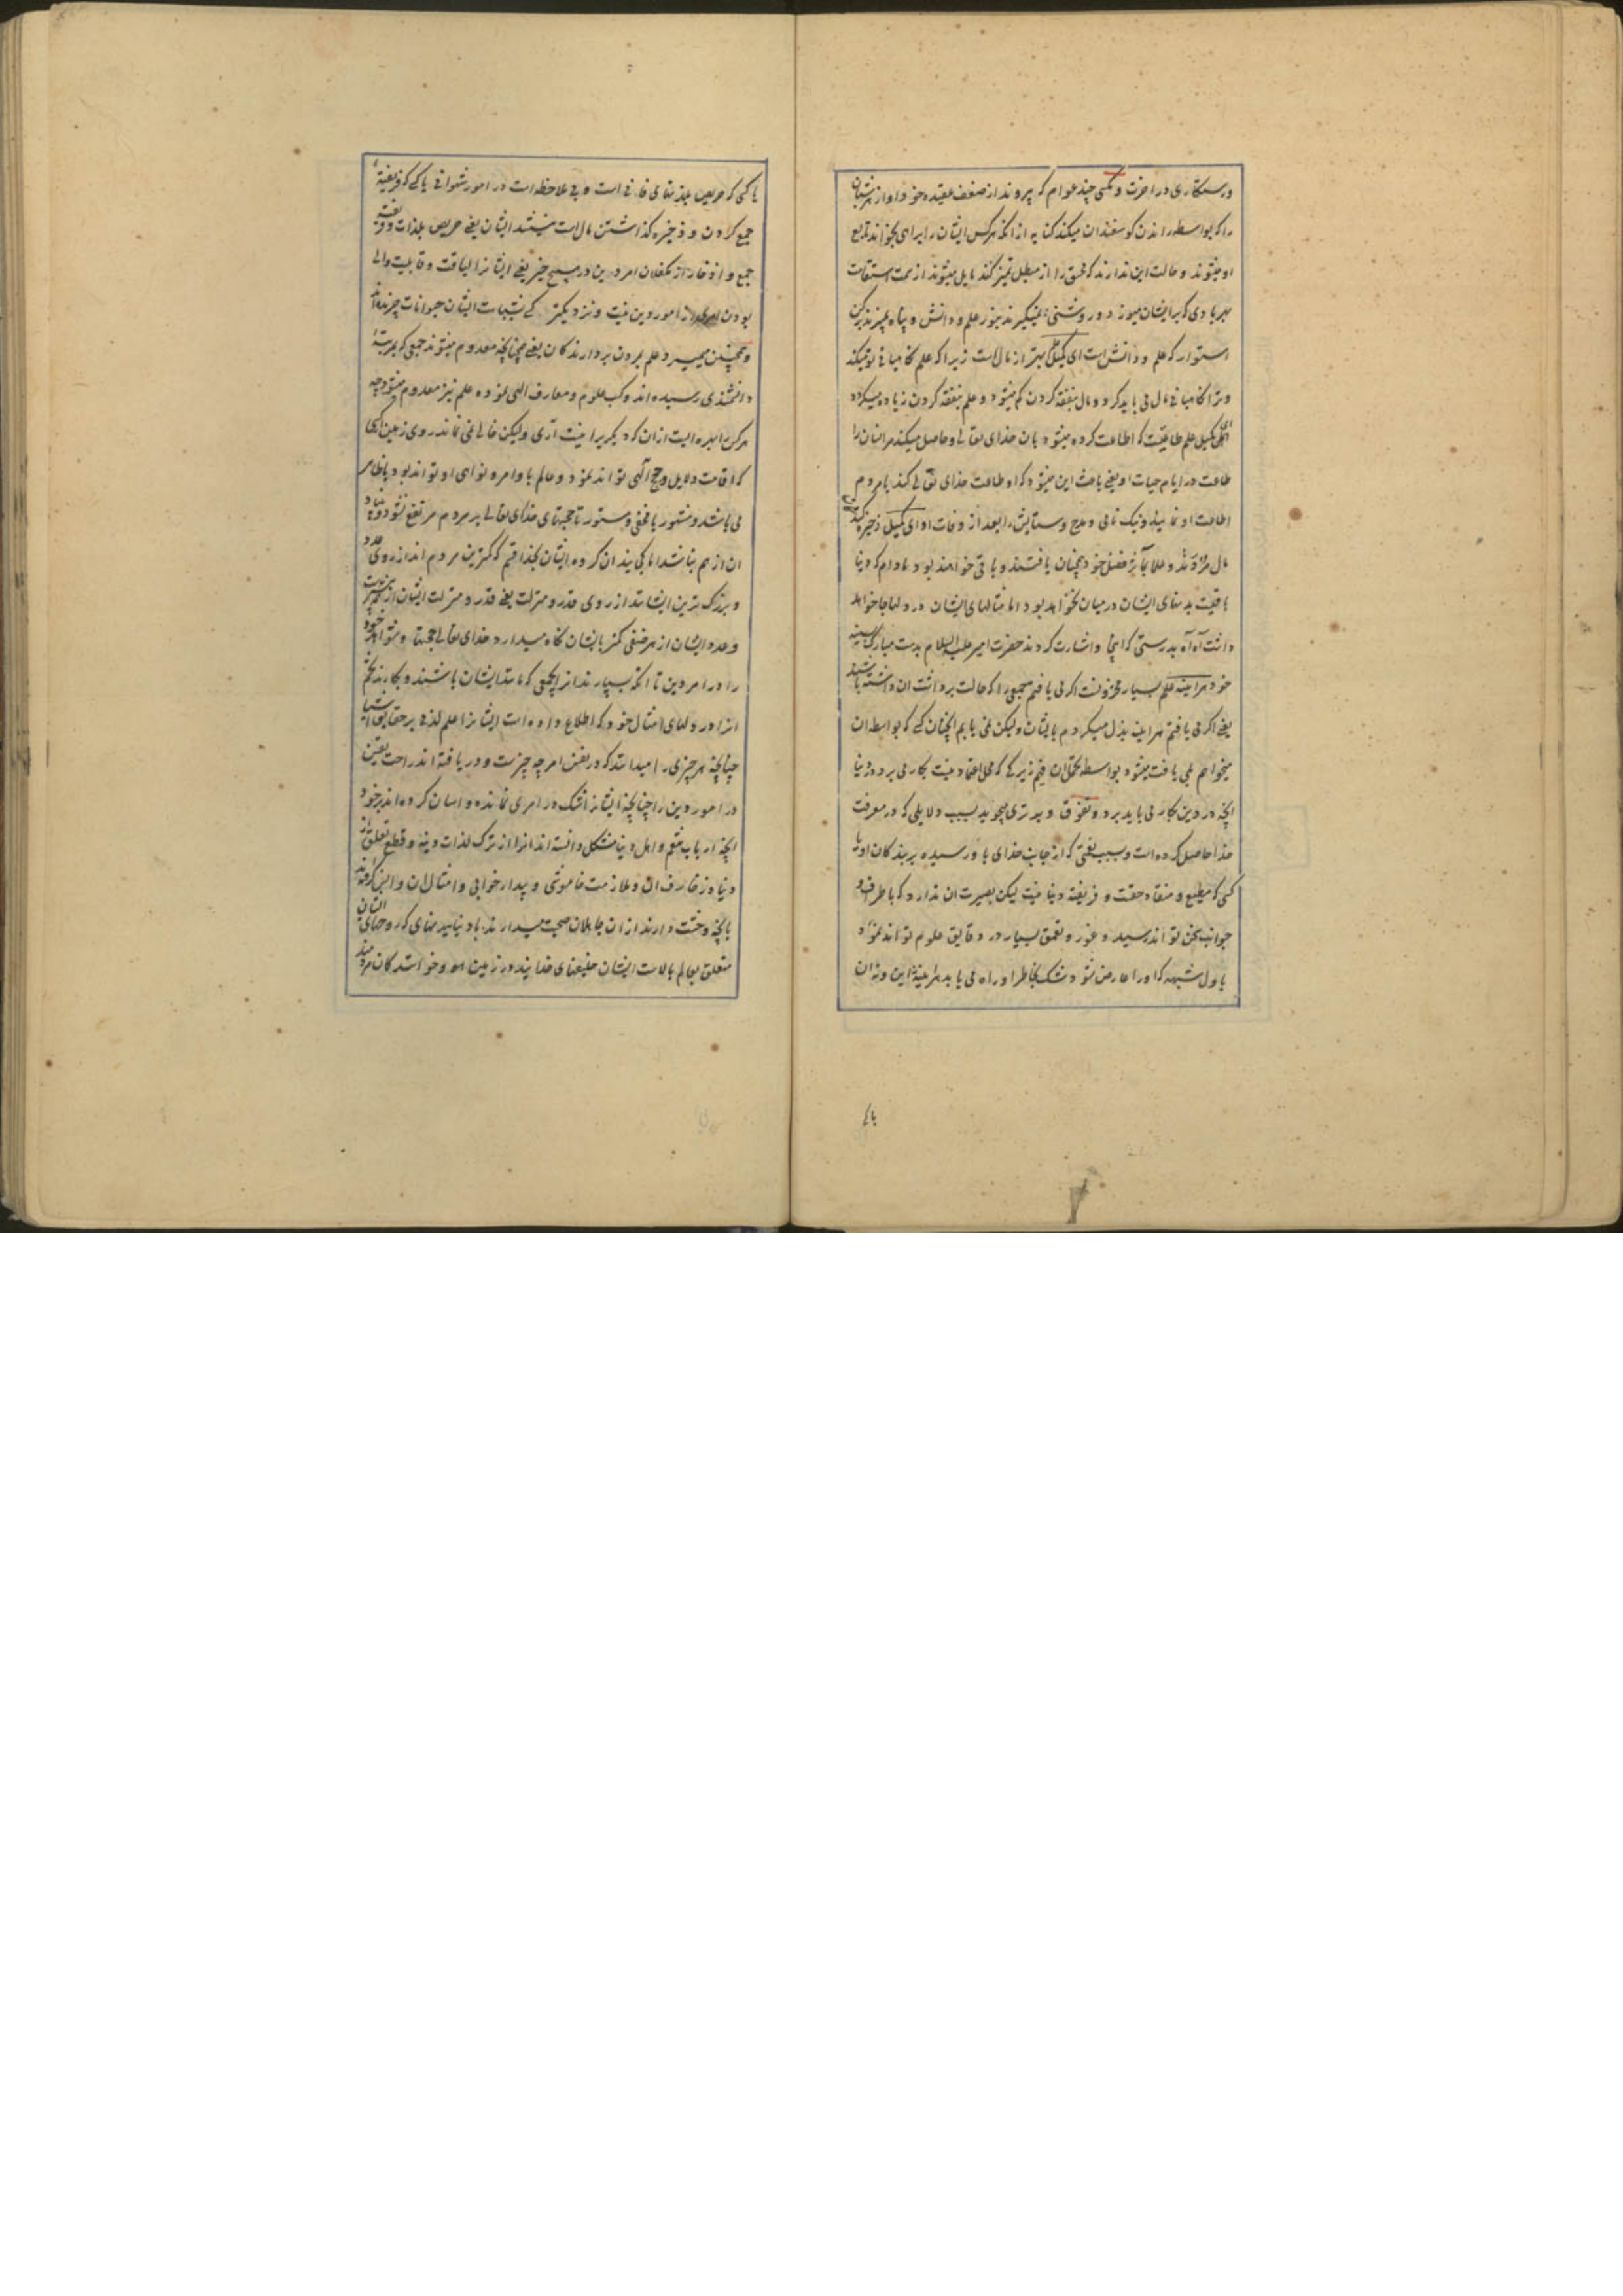 ورستکاری در اخرت و کسی چند عوام که پیروند از ضعف عقیده خود اواز هر شبان
را که بواسطه راندن کوسفندان میکند کنایه از انکه هرکس ایشان را براهی بخواند تابع
او میشوند و حالت این ندارند که محق را از مبطل تمیز کنند مایل میشوند از سمت استقامت
بهر بادی که بر ایشان میوزد و روشنی نمیکیرند بنور علم و دانش و پناه نمیبرند برکن
استوار که علم و دانش است ای کمیل علم بهتر از مال است زیرا که علم نکاهبانی تو میکند
و ترا نکاهبانی مال می باید کرد و مال بنفقه کردن کم میشود و علم بنفقه کردن زیاده میکردد
ای کمیل علم طاعتیست که اطاعت کرده میشود بان خدای تعالی و حاصل میکند مر انسان را
طاعت در ایام حیات او یعنی باعث این میشود که او طاعت خدای تعالی کند یا مردم
اطاعت او نمایند و نیک نامی و مدح و ستایش را بعد از وفات او ای کمیل ذخیره کنندکان
مال مردند و علما بآثار فضل خود همچنان یافتند و باقی خواهند بود مادام که دنیا
باقیست بدنهای ایشان در میان نخواهد بود اما مثالهای ایشان در دلها جا خواهد
داشت آه آه بدرستی که اینجا و اشارت کردند حضرت امیر علیه السلام بدست مبارک بسینه
خود هراینه علم بسیار مخزونست اکر می یافتم جمعی را که حالت برداشت ان داشته باشند
یعنی اکر می یافتم هراینه بذل میکردم بایشان ولیکن نمی یابم انچنان کسی که بواسطه ان
میخواهم بلی یافت میشود بواسطه تحمل ان فهم زیرکی که محل اعتماد نیست بکار می برد در دنیا
انچه در دین بکار می باید برد و تفوق و برتری میجوید بسبب دلایلی که در معرفت
خدا حاصل کرده است و بسبب نعمتی که از جانب خدای باو رسیده بر بندکان او یا
کسی که مطیع و منقاد حقست و فریفته دنیا نیست لیکن بصیرت ان ندارد که باطراف و
جوانب سخن تواند رسید و غور و تعمق بسیار در دقایق علوم تواند نمود
باول شبهه که او را عارض شود شک بخاطر او راه می یابد هراینه این و نه ان
یا کسی
یا کسی که حریص بلذتهای فانی است و بی ملاحظه است در امور شهوانی یا کسی که فریفتهٔ
جمع کردن و ذخیره کذاشتن مال است نیستند ایشان یعنی حریص بلذات و فریفته
جمع و اذخار از مکفلان امر دین در هیچ چیز یعنی ایشانرا لیاقت و قابلیت والی
بودن امری از امور دین نیست و نزدیکتر کسی بشباهت ایشان حیوانات چرنده اند
و همچنین میمیرد علم بمردن بردارندکان یعنی همچنانچه معدوم میشوند جمعی که بمرتبهٔ
دانشمندی رسیده اند و کسب علوم و معارف الهی نموده علم نیز معدوم میشود چه
هرکس را بهره ایست از ان که دیکریرا نیست آری ولیکن خالی نمی ماند روی زمین از کسی
که اقامت دلایل و حجج الهی تواند نمود و عالم باوامر و نواهی او تواند بود یا ظاهر
می باشد و مشهور یا مخفی و مستور تا حجتهای خدای تعالی بر مردم مرتفع نشود و بنیاد
ان از هم نپاشد اما کجایند ان کروه ایشان بخدا قسم که کمترین مردم اند از روی عدد
و بزرک ترین ایشانند از روی قدر و منزلت یعنی قدر و منزلت ایشان از همه بیشتر
و عدد ایشان از هر صنفی کمتر بایشان نکاه میدارد خدای تعالی حجتها و شواهد خود
را در امر دین تا انکه بسپارند از انجمعی که مانند ایشان باشند و بکارند تخم
انرا در دلهای امثال خود که اطلاع داده است ایشانرا علم لدنی بر حقایق اشیا
چنانچه هر چیزی را میدانند که در نفس امر چه چیز ست و دریافته اند راحت یقین
در امور دین را چنانچه ایشانرا شک در امری نمانده و اسان کرده اند بر خود
انچه ارباب تنعم و اهل دنیا مشکل دانسته اند انرا از ترک لذات دنیه و قطع تعلق از
دنیا و زخارف ان و ملازمت خاموشی و بیدار خوابی و امثال ان و انس کرفته اند
بانچه وحشت دارند از ان جاهلان صحبت میدارند با دنیا ببدنهای که روحهای ایشان
متعلق بعالم بالاست ایشان خلیفهای خدایند در زمین او و خوانندکان مردمند